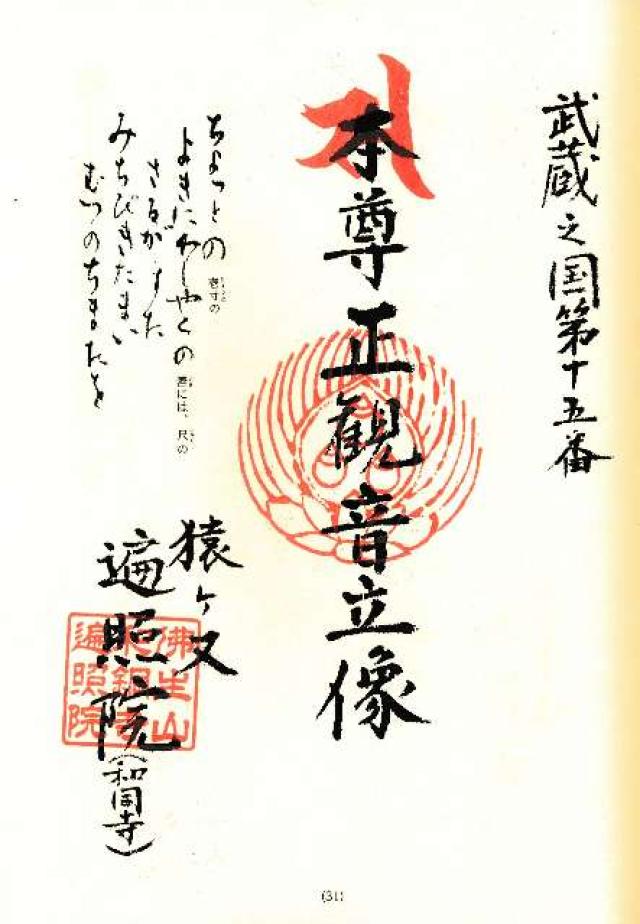 武蔵之国第十五番
本尊正観音立像
ちよつとの
壱寸の
よきにわしやくの
善には、尺の
さるがまた
みちびきたまい
むつのちまたを
猿ヶ又
遍照院
(和同寺)
佛生山
遍照院
(31)